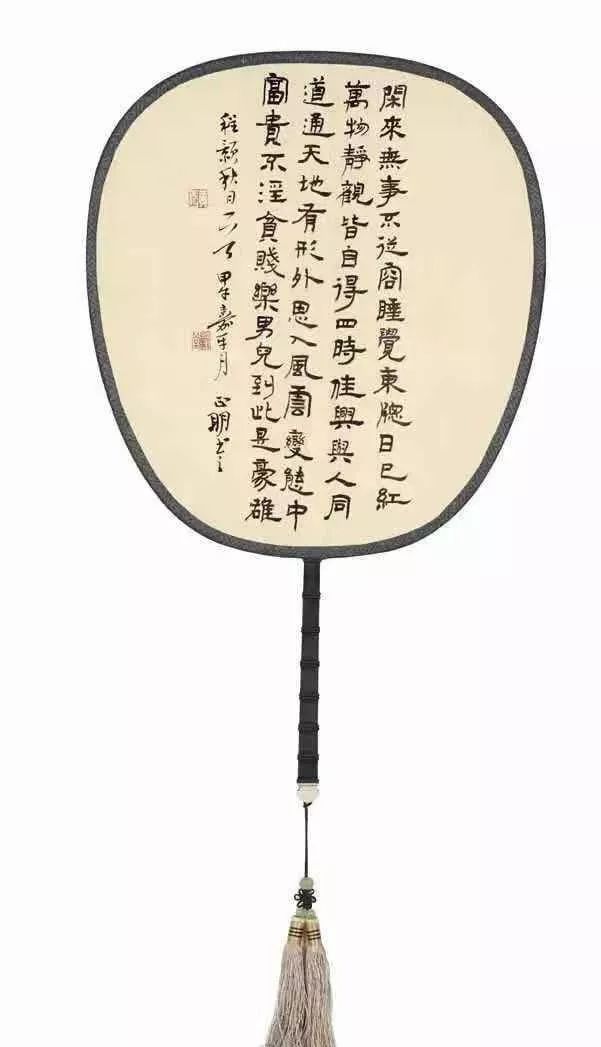 閑來無事不從容睡覺東牕日已紅
萬物靜觀皆自得四時佳興與人同
道通天地有形外思入風雲變態中
富貴不淫貧賤樂男兒到此是豪雄
程顥秋日一首甲午嘉平月正明書